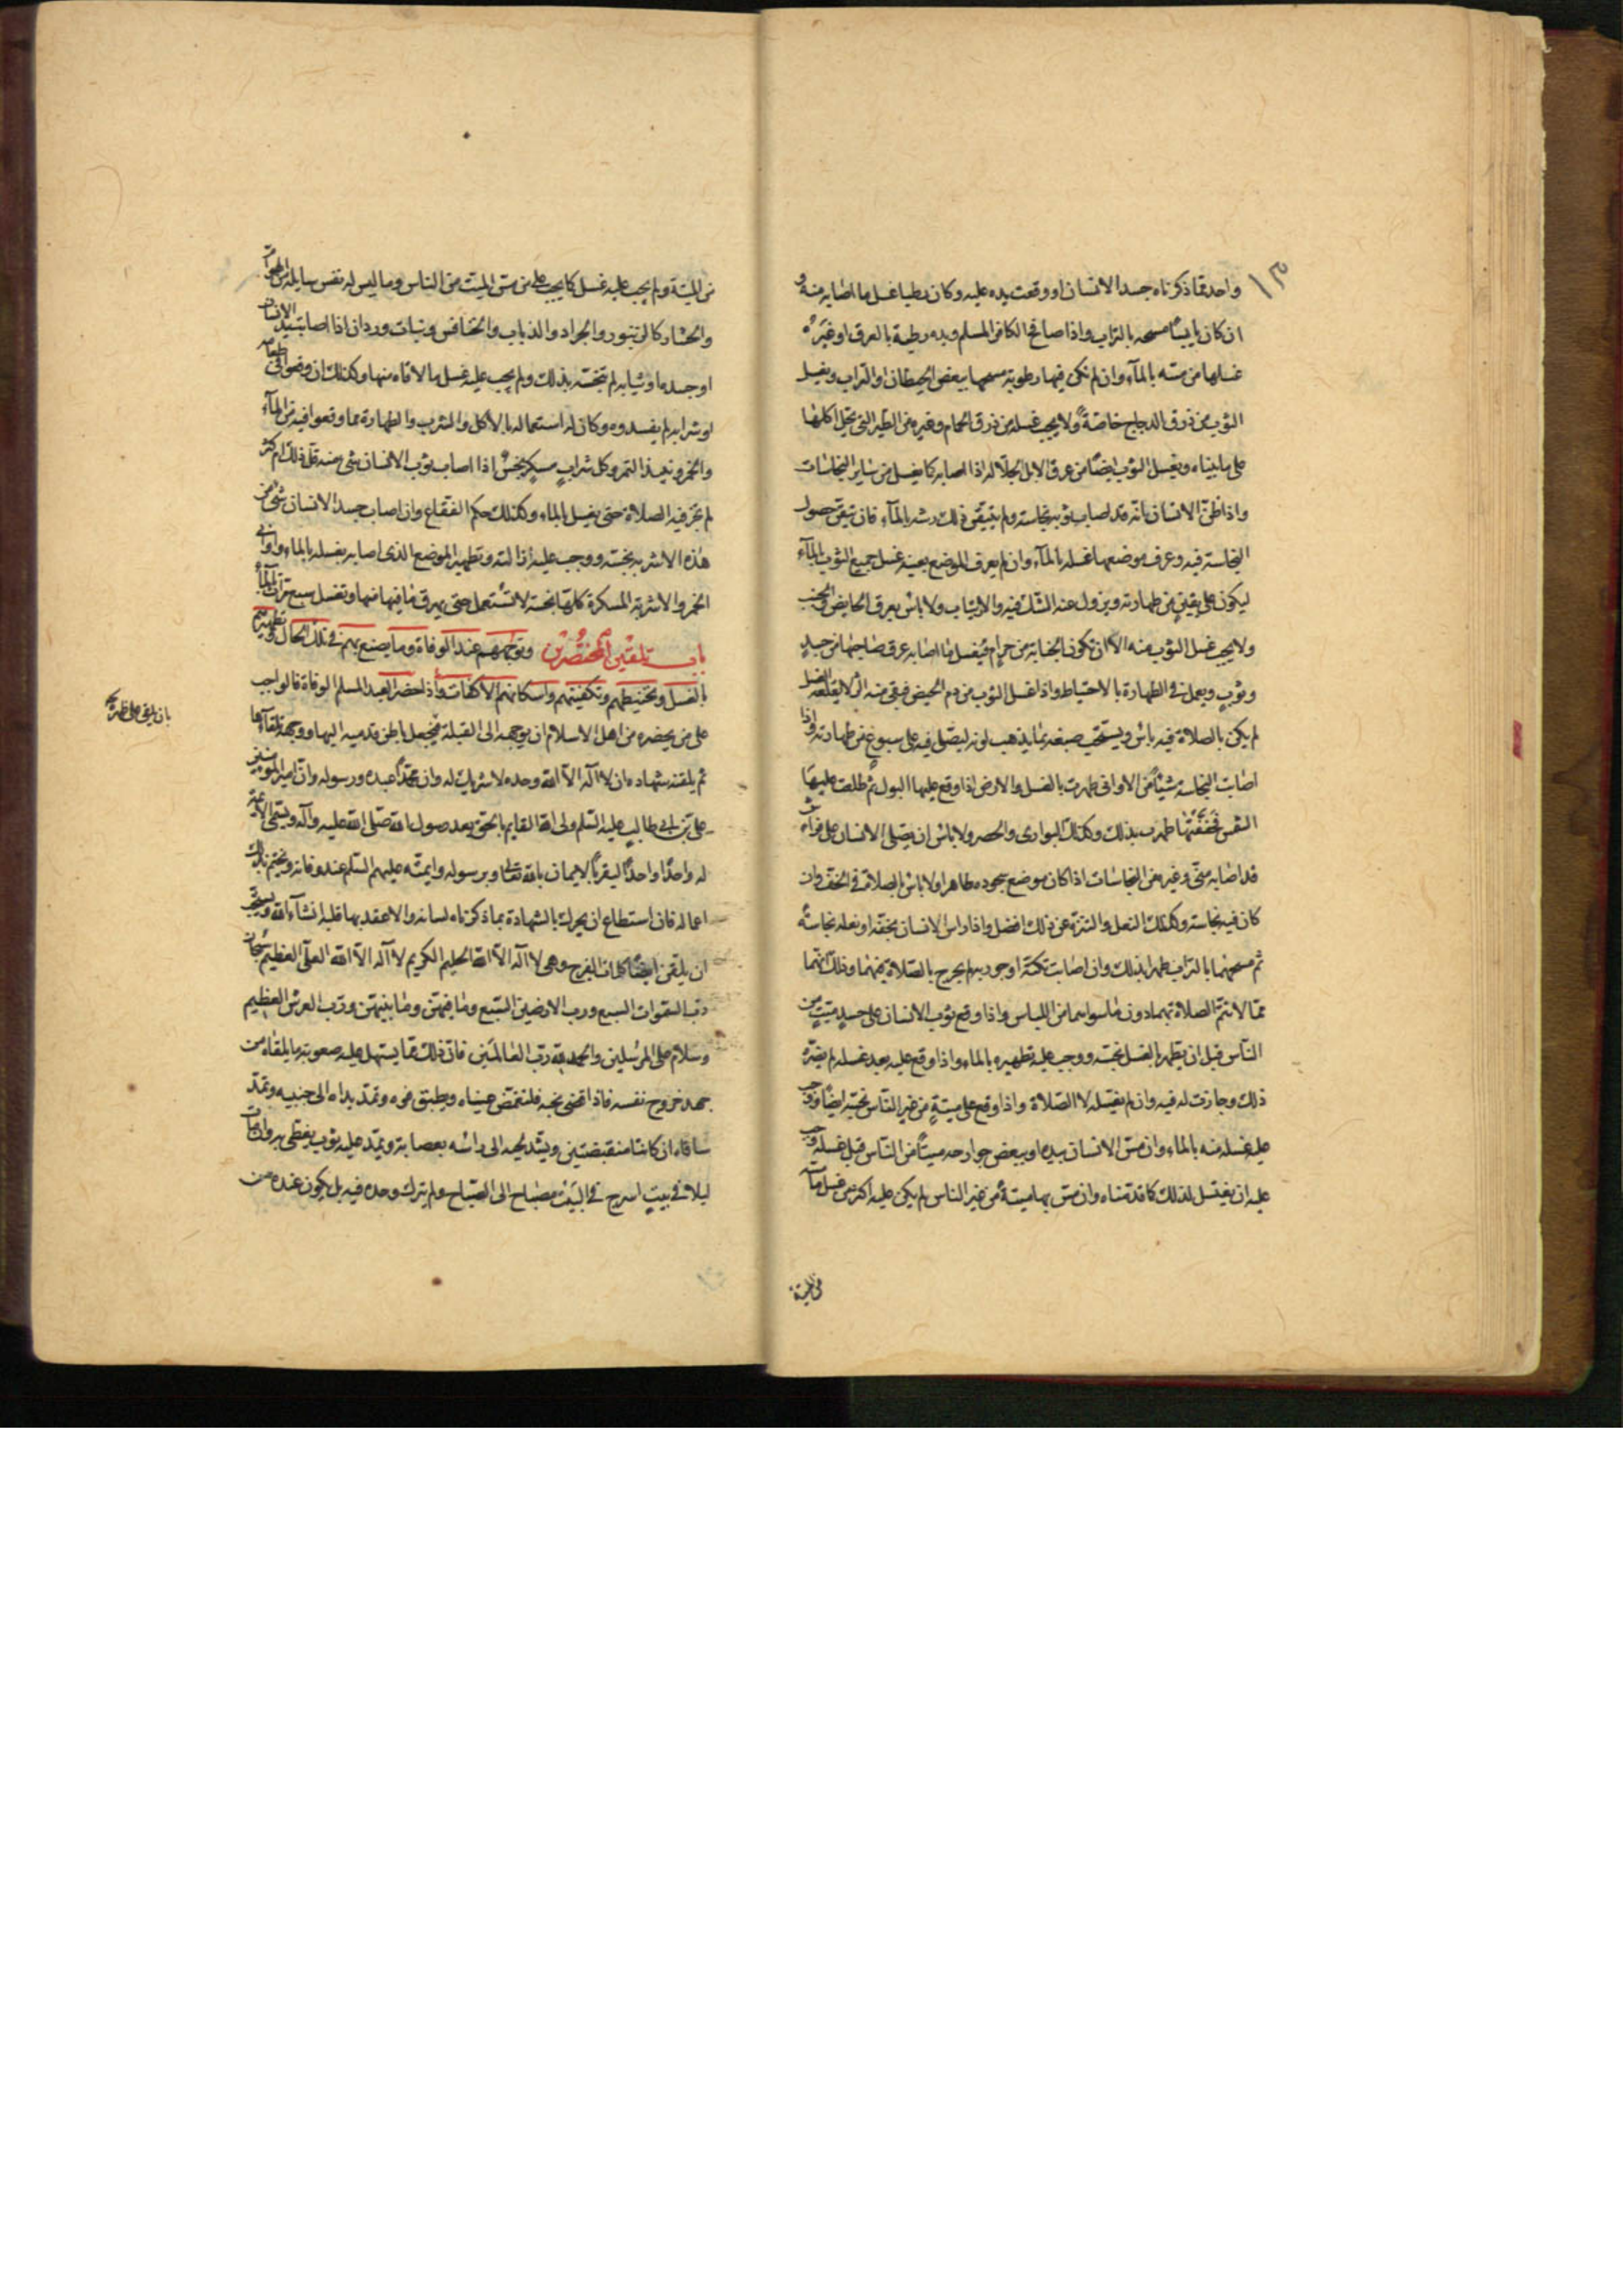 ١٣
واحد مما ذكرناه جسد الانسان او وقعت يده عليه وكان رطبا غسل ما اصابه منه و
ان كان يابسًا مسحه بالتراب واذا صافح الكافر المسلم ويده رطبة بالعرق او غيره
غسلها من مسّه بالمآء وان لم تكن فيها رطوبة مسحها ببعض الحيطان او التراب ويغسل
الثوب من ذرق الدجاج خاصّة ولا يجب غسله من ذرق الحمام وغيره من الطير التي يحل اكلها
على ما بيناه ويغسل الثوب ايضًا من عرق الابل الجلّالة اذا اصابه كما يغسل من ساير النجاسات
واذا ظنّ الانسان بانه قد اصاب ثوبه نجاسة ولم يتيقن ذلك رشه بالمآء فان تيقن حصول
النجاسة فيه وعرف موضعها غسله بالمآء وان لم يعرف الموضع بعينه غسل جميع الثوب بالمآء
ليكون على يقينٍ من طهارته ويزول عنه الشك فيه والارتياب ولا باس بعرق الحايض والجنب
ولا يجب غسل الثوب منه الا ان تكون الجنابة من حرامٍ فيغسل ما اصابه عرق صاحبها من جسدٍ
وثوبٍ ويعمل في الطهارة بالاحتياط واذا غسل الثوب من دم الحيض فبقي منه اثر لا يقلعه الغسل
لم يكن بالصلاة فيه باس ويستحب صبغه بما يذهب لونه ليصلّي فيه على سبوغ من طهارته واذا
اصابت النجاسة شيئًا من الاواني طهرت بالغسل والارض اذا وقع عليها البول ثم طلعت عليها
الشمس فجفّفتها طهرت بذلك وكذلك البواري والحصر ولا باس ان يصلي الانسان على فراش
قد اصابه منيّ وغيره من النجاسات اذا كان موضع سجوده طاهرا ولا باس بالصلاة في الخف وان
كان فيه نجاسة وكذلك النعل والتنزه عن ذلك افضل واذا داس الانسان بخفّه او نعله نجاسة
ثم مسحهما بالتراب طهرا بذلك وان اصابت تكّته او جوربه لم يحرج بالصلاة فيهما وذلك انهما
ممّا لا تتم الصلاة بهما دون ما سواهما من اللباس واذا وقع ثوب الانسان على جسد ميّتٍ من
النّاس قبل ان يطهر بالغسل نجّسه ووجب عليه تطهيره بالماء واذا وقع عليه بعد غسله لم يضرّه
ذلك وجازت له فيه وان لم يغسله الصّلاة واذا وقع على ميتةٍ من غير النّاس نجّسه ايضًا ووجب
عليه غسله منه بالماء وان مسّ الانسان بيده او ببعض جوارحه ميتًا من النّاس قبل غسله وجب
عليه ان يغتسل لذلك كما قدمناه وان مسّ بها ميتةً من غير الناس لم يكن عليه اكثر من غسل ما مسّه
من الميتة
من الميتة ولم يجب عليه غسل كما يجب على من مسّ الميّت من الناس وما ليس له نفس سايلة من الهوامّ
والحشار كالزنبور والجراد والذباب والخنافس وبنات وردان اذا اصابت يد الانسان
او جسده او ثيابه لم تنجّسه بذلك ولم يجب عليه غسل ما لاقاه منها وكذلك ان وقعوا في طعامه
او شرابه لم يفسدوه وكان له استعماله بالاكل والشرب والطهارة مما وقعوا فيه من المآء
والخمر ونبيذ التمر وكل شرابٍ مسكرٍ نجسٌ اذا اصاب ثوب الانسان شي منه قلّ ذلك ام كثر
لم تجز فيه الصلاة حتى يغسل بالماء وكذلك حكم الفقاع وان اصاب جسد الانسان شي من
هذه الاشربة نجّسه ووجب عليه ازالته وتطهير الموضع الذي اصابه بغسله بالماء واواني
الخمر والاشربة المسكرة كلها نجسة لا تستعمل حتى يهرق ما فيها منها وتغسل سبع مرّات بالمآء
باب تلقين المحتضرين وتوجّههم عند الوفاة وما يصنع بهم في تلك الحال وتطهيرهم
بالغسل وتحنيطهم وتكفينهم واسكانهم الاكفات واذا حضر العبد المسلم الوفاة فالواجب
على من يحضره من اهل الاسلام ان يوجهه الى القبلة فيجعل باطن قدميه اليها ووجهه تلقاءها
بان يلقي على ظهره
ثم يلقنه شهادة ان لا اله الا الله وحده لا شريك له وان محمّدًا عبده ورسوله وانّ امير المومنين
علي بن ابي طالب عليه السّلم ولي الله القايم بالحق بعد رسول الله صلّى الله عليه وآله ويسمّي الائمّة
له واحدًا واحدًا ليقرّ بالايمان بالله تعالى وبرسوله وائمّته عليهم السّلم عند وفاته ويختم بذلك
اعماله فان استطاع ان يحرك بالشهادة بما ذكرناه لسانه والا عقد بها قلبه انشآء الله ويستحب
ان يلقن ايضًا كلمات الفرج وهي لا اله الا الله الحليم الكريم لا اله الا الله العليّ العظيم سبحان
ربّ السّموات السبع وربّ الارضين السّبع وما فيهنّ وما بينهنّ وربّ العرش العظيم
وسلام على المرسلين والحمد لله ربّ العالمين فانّ ذلك ممّا يسهل عليه صعوبة ما يلقاه من
جهد خروج نفسه فاذا قضى نحبه فلتغمّض عيناه ويطبق فوه وتمدّ يداه الى جنبيه وتمدّ
ساقاه ان كانتا منقبضتين ويشدّ لحيه الى رأسه بعصابة ويمدّ عليه ثوب يغطّى به وان مات
ليلا في بيتٍ اسرج في البيت مصباح الى الصّباح ولم يترك وحده فيه بل يكون عنده من